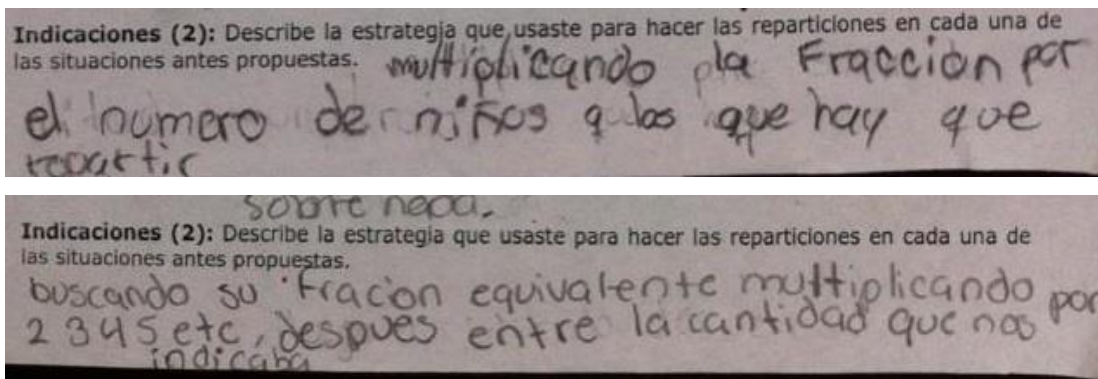 Indicaciones (2): Describe la estrategia que usaste para hacer las reparticiones en cada una de
las situaciones antes propuestas. multiplicando la Fracción por
el numero de niños a los que hay que
repartir
sobre nepa.
Indicaciones (2): Describe la estrategia que usaste para hacer las reparticiones en cada una de
las situaciones antes propuestas.
buscando su fracion equivalente multiplicando por
2 3 4 5 etc, despues entre la cantidad que nos
indicaba